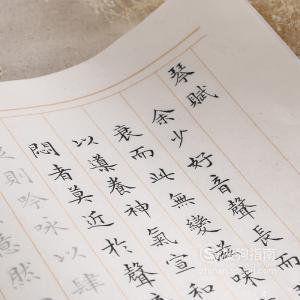 琴賦
余少好音聲長而
衰而此無變滋味
以導養神氣宣和
悶者莫近於聲
則吟詠以肆